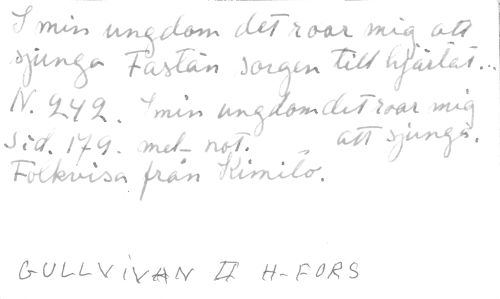 I min ungdom det roar mig att
sjunga Fastän sorgen till hjärtat...
N. 242. I min ungdom det roar mig
Sid. 179. mel- not. att sjunga.
Folkvisa från Kimito.
GULLVIVAN II H-FORS